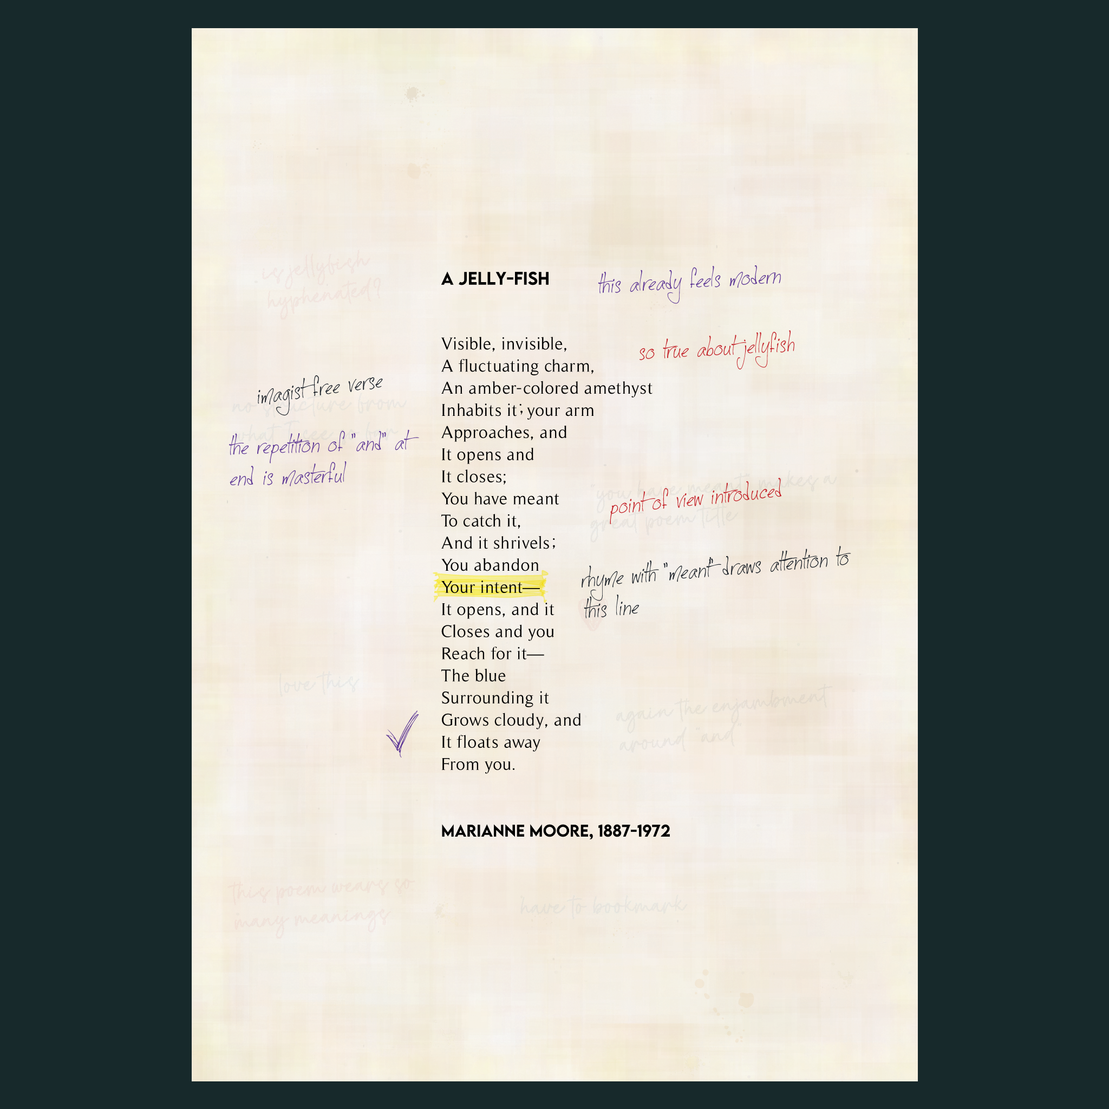 is jellyfish
hyphenated?
A JELLY-FISH
this already feels modern
Visible, invisible,
so true about jellyfish
A fluctuating charm,
An amber-colored amethyst
imagist free verse
Inhabits it; your arm
Approaches, and
the repetition of "and" at
end is masterful
It opens and
It closes;
You have meant
point of view introduced
great poem title
To catch it,
And it shrivels;
You abandon
Your intent—
rhyme with "meant" draws attention to
this line
It opens, and it
Closes and you
Reach for it—
The blue
love this
Surrounding it
Grows cloudy, and
again the enjambment
around "and"
It floats away
From you.
MARIANNE MOORE, 1887-1972
this poem wears so
many meanings
have to bookmark